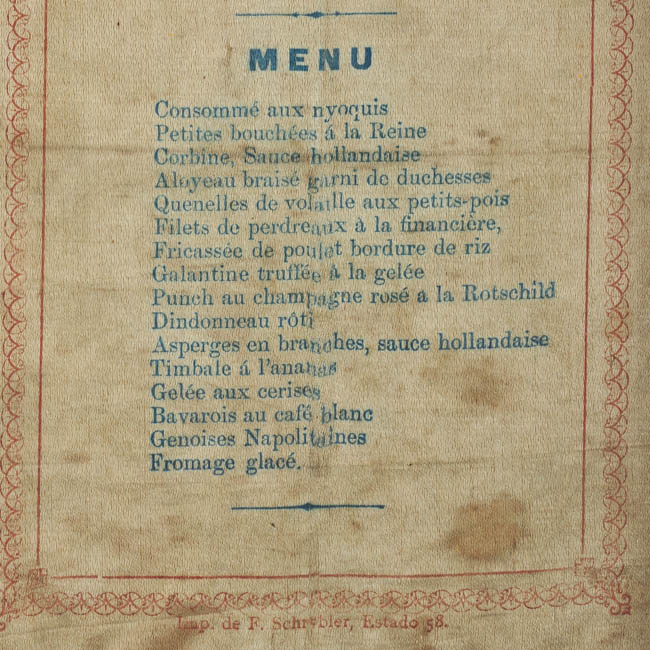 MENU
Consommé aux nyoquis
Petites bouchées á la Reine
Corbine, Sauce hollandaise
Aloyeau braisé garni de duchesses
Quenelles de volaille aux petits-pois
Filets de perdreaux à la financière,
Fricassée de poulet bordure de riz
Galantine truffée à la gelée
Punch au champagne rosé a la Rotschild
Dindonneau rôti
Asperges en branches, sauce hollandaise
Timbale á l'ananas
Gelée aux cerises
Bavarois au café blanc
Genoises Napolitaines
Fromage glacé.
Imp. de F. Schrebler, Estado 58.